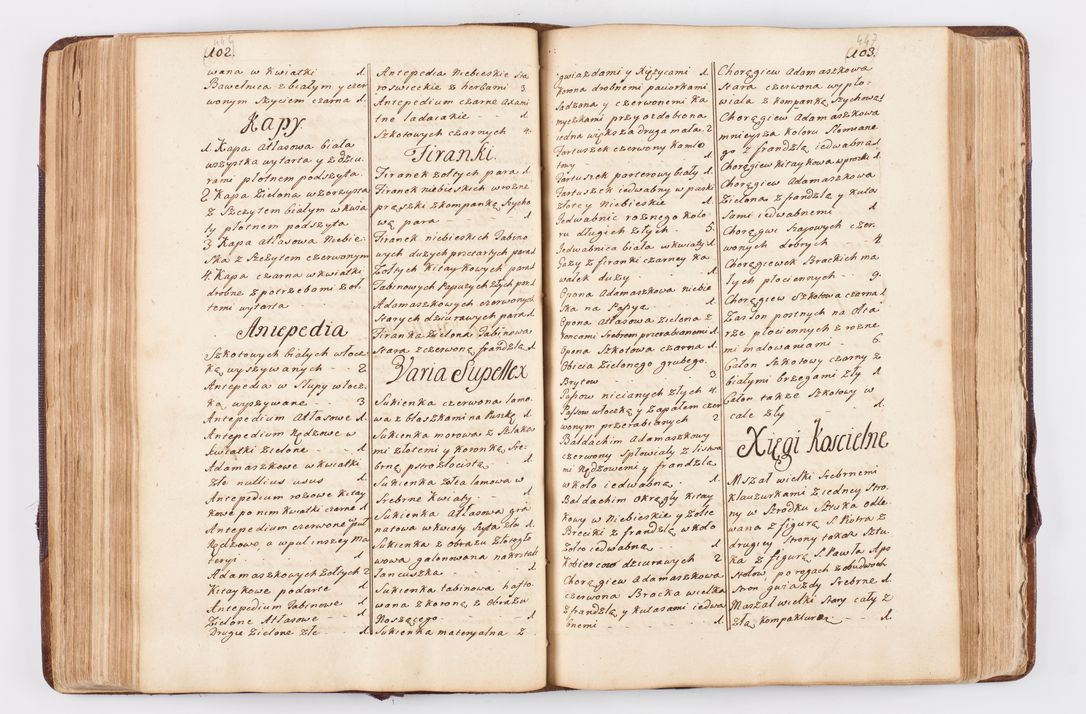 102.
wana w kwiatki 1.
Bawełnica z białym y czer
wonym szyciem czarna 1.
Kapy
1. Kapa Atłasowa biała
wszystka wytarta y z dziu
rami płotnem podszyta.
2. Kapa Zielona wzorzysta
z Szczytem białym w kwia
ty płotnem podszyta
3. Kapa atłasowa Niebie
ska z Szczytem czerwonym
4. Kapa czarna w kwiatki
drobne z potrzebami zoł
temi wytarta
Antepedia
Szkotowych białych włocz
ką wyszywanych 2
Antepedia w Słupy włocz
ką wyszywane 3
Antepedium Atłasowe 1.
Antepedium Rądzowe w
kwiatki Zielone 1.
Adamaszkowe w kwiatki
złe nullius usus 1.
Antepedium rozowe Kitay
kowe po nim kwiatki czarne 1.
Antepedium czerwone
Rądzowe, a w pul inszey ma
teryi 1.
Adamaszkowych Zoltych 2
Kitaykowe podarte 1.
Antepedium Tabinowe 1.
Zielone Atłasowe 1.
Drugie Zielone złe 1.
Antepedia Niebieskie sta
roswieckie z herbami 3
Antepedium czarne Axami
tne ladaiakie 1.
Szkotowych czarnych 4.
Firanki.
Firanek zołtych para 1.
Firanek niebieskich w rozne
prązki z kompanką Szycho
wą para 1.
Firanek niebieskich Tabino
wych duzych przetartych para 1.
Zołtych Kitaykowych para 1.
Tabinowych Papuzych złych par. 1.
Adamaszkowych czerwonych
starych dziurawych para 1.
Firanka Zielona Tabinowa
stara z czerwoną frandzlą 1.
Varia Supellex
Sukienka czerwona lamo
wa z blaszkami na Puszkę 1.
Sukienka morowa z Sztuka
mi złotemi y koronką Sre
brną pstrozłocistą 1.
Sukienka Zółta lamowa w
Srebrne kwiaty 1.
Sukienka Atłasowa gra
natowa w kwiaty szyta zła 1.
Sukienka z obrazu Złotogło
wowa galonowana na krztałt
Łancuszka 1.
Sukienka tabinowa hafto
wana z koroną z obrazu
Noszącego 1.
Sukienka materyalna z
447
103.
gwiazdami y Xięzycami 1.
Korona drobnemi paciorkami
sadzona y czerwonemi ka
myczkami przyozdobiona
iedna większa druga mała. 2
Fartuszek czerwony Kamlo
towy 1.
Fartuszek porterowy biały 1.
Fartuszek iedwabny w paski
złote y Niebieskie 1.
Jedwabnic roznego kolo
ru długich złych 5.
Jedwabnica biała w kwiaty 1.
Gazy z firanki czarney ka
wałek duzy 1.
Opona Adamaszkowa niebie
ska na Passye 1.
Opona Atłasowa Zielona z
koncami Srebrem przerabianemi 1.
Opona Szkotowa czarna 1.
Obicia Zielonego grubego.
Brytow 3
Pasow nicianych złych 4.
Passow włoczką y Zapałem czer
wonym przerabianych 2
Baldachim Adamaszkowy
czerwony Spłowiały z listwa
mi Rądzowemi y frandzlą
w koło iedwabną 1.
Baldachim okrągły Kitay
kowy w Niebieskie y Zołte
Breciki z frandzlą w koło
zołto iedwabną 1.
Kobiercow dziurawych 2
Chorągiew Adamaszkowa
czerwona Bracka wielka
z frandzlą y kutasami iedwa
bnemi 1.
Chorągiew Adamaszkowa
stara czerwona wypło
wiała z kompanką Szychową 1
Chorągiew Adamaszkowa
mnieysza koloru Słomiane
go z frandzlą iedwabną 1
Chorągiew Kitaykowa w prązki 1.
Chorągiew Adamaszkowa
Zielona z frandzlą y kuta
sami iedwabnemi 1
Chorągwi krajowych czer
wonych dobrych 4
Chorągiewek Brackich ma
łych płociennych 9.
Chorągiew Szkotowa czarna 1
Zasłon postnych na Ołta
rze płociennych z rozne
mi malowaniami 6.
Całon Szkotowy czarny z
białymi brzegami zły 1.
Całon takze Szkotowy w
cale zły 1.
Xięgi Koscielne
Mszał wielki Srebrnemi
klauzurkami z iedney Stro
ny w Srodku Sztuka odle
wana z figurą S. Piotra z
drugiey Strony takaz Sztu
ka z figurą S. Pawła Apo
stołow, po rogach z obudwoch
stron gwiazdy Srebrne 1.
Mszał wielki stary cały z
złą kompakturą 1.